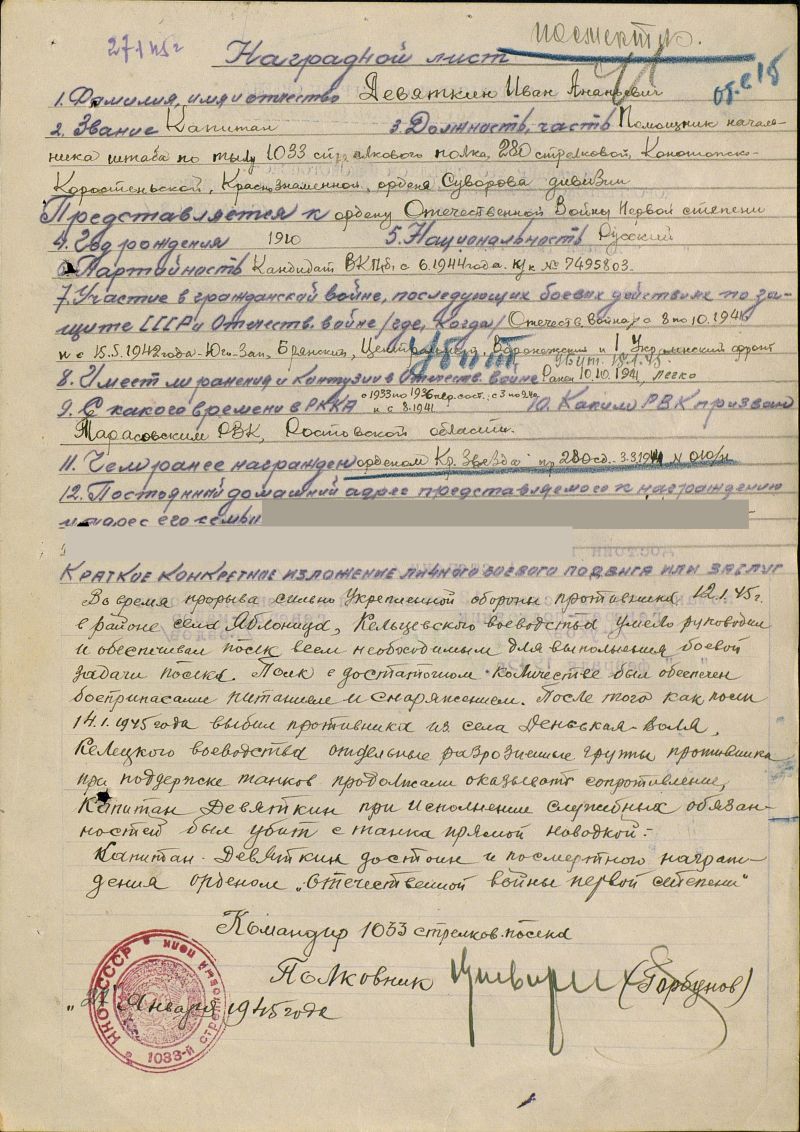 27.1.45г
посмертно.
Наградной лист
1. Фамилия, имя и отчество Девяткин Иван Ананьевич
2. Звание Капитан 3. Должность, часть Помощник началь-
ника штаба по тылу 1033 стрелкового полка, 280 стрелковой, Конотопско-
Коростеньской, Краснознаменной, ордена Суворова дивизии
Представляется к ордену Отечественной Войны Первой степени
4. Год рождения 1910 5. Национальность Русский
6. Партийность Кандидат ВКП(б) с 6.1944 года. к/к № 7495803.
7. Участие в гражданской войне, последующих боевых действиях по за-
щите СССР и Отечеств. войне /где, когда/ Отечеств. война с 8 по 10.1941
и с 15.5.1942 года - Юго-Зап., Брянский, Центральный, Воронежский и 1 Украинский фронт
Убит
8. Имеет ли ранения и контузии в Отечеств. войне Ранен 10.10.1941, легко
9. С какого времени в РККА с 1933 по 1936 и с 8.1941 10. Каким РВК призван
Тарасовским РВК, Ростовской области.
11. Чем ранее награжден орденом Кр. Звезда пр. 280 сд. № 010/н
12. Постоянный домашний адрес представляемого к награждению
и адрес его семьи
Краткое конкретное изложение личного боевого подвига или заслуг
Во время прорыва сильно укрепленной обороны противника 12.1.45г.
в районе села Яблоница, Кельцевского воеводства умело руководил
и обеспечивал полк всем необходимым для выполнения боевой
задачи полка. Полк в достаточном количестве был обеспечен
боеприпасами питанием и снаряжением. После того как полк
14.1.1945 года выбил противника из села Деньская-Воля,
Келецкого воеводства отдельные разрозненные группы противника
при поддержке танков продолжали оказывать сопротивление,
Капитан Девяткин при исполнении служебных обязан-
ностей был убит с танка прямой наводкой.-
Капитан Девяткин достоин и посмертного награж-
дения орденом „Отечественной войны первой степени"
Командир 1033 стрелков. полка
Полковник (Горбунов)
Января 1945 года
НКО СССР 1033-й стрелковый полк